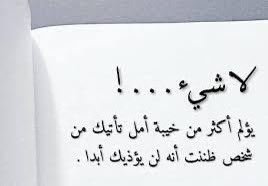 لا شيء . . . . !
يؤلم أكثر من خيبة أمل تأتيك من
شخص ظننت أنه لن يؤذيك أبدا .